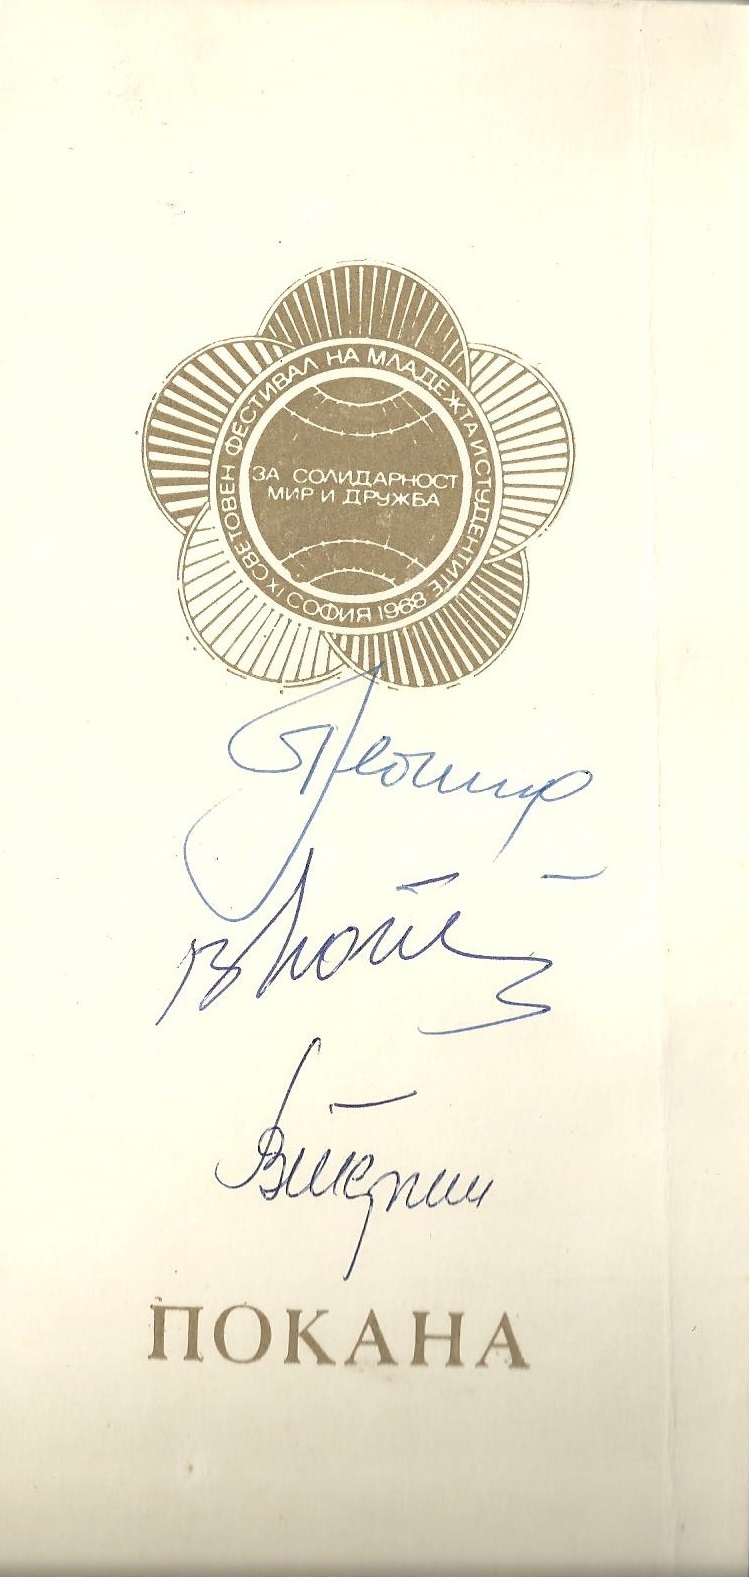 IX СВЕТОВЕН ФЕСТИВАЛ НА МЛАДЕЖТА И СТУДЕНТИТЕ
СОФИЯ 1968
ЗА СОЛИДАРНОСТ
МИР И ДРУЖБА
ПОКАНА